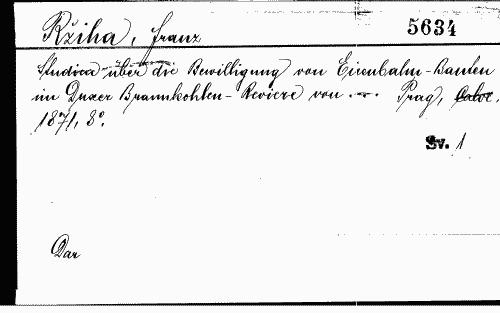 Ržiha, Franz 5634
Studien über die Bewilligung von Eisenbahn-Bauten
im Duxer Braunkohlen-Reviere von .–. Prag, Calve.
1871, 8°.
Sv. 1
Dar